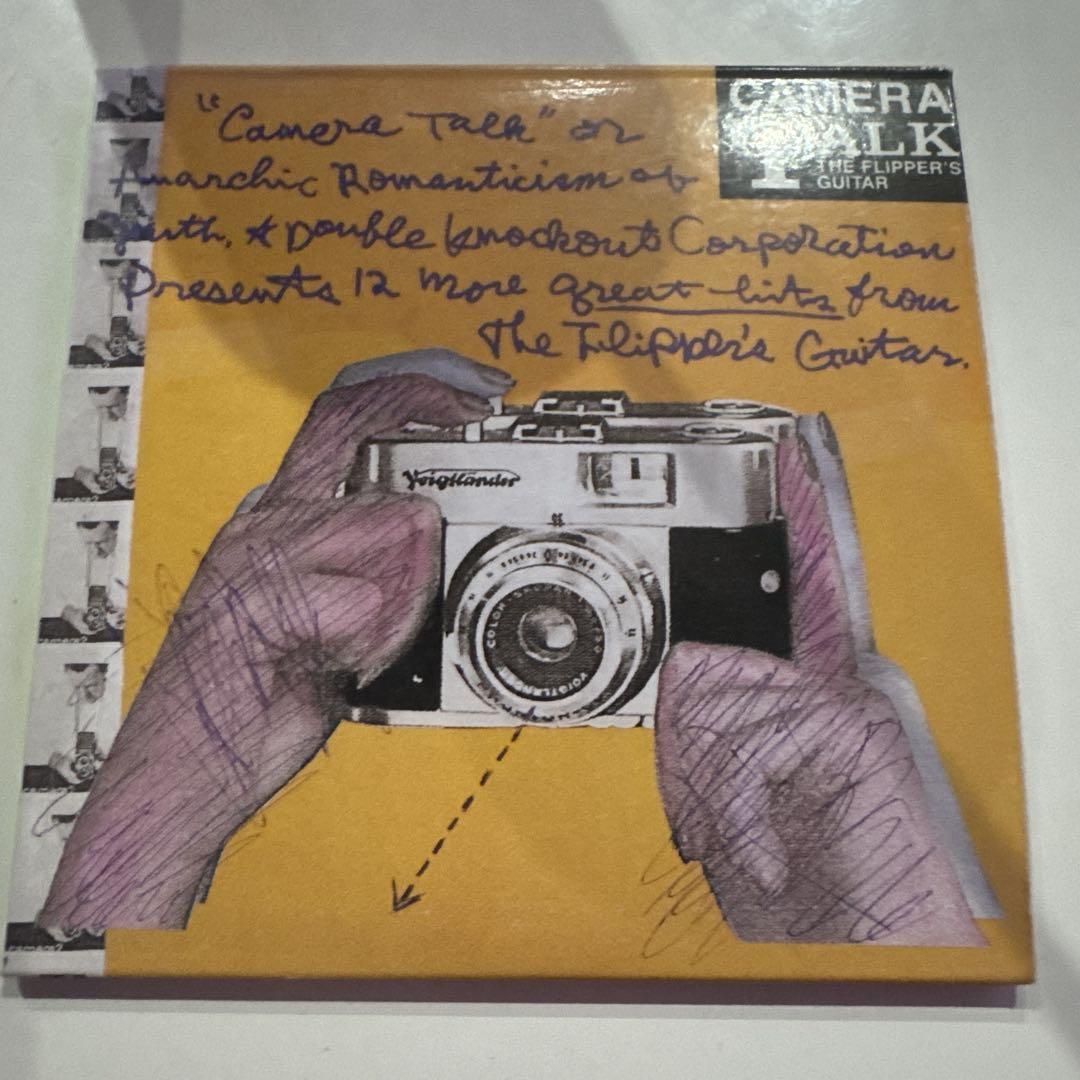 "Camera Talk" or
Anarchic Romanticism of
youth, & Double Knockout Corporation
Presents 12 more great hits from
The Flipper's Guitar.
CAMERA
TALK
THE FLIPPER'S
GUITAR
Voigtländer
COLOR
VOIGTLÄNDER
camera2
camera2
camera2
camera2